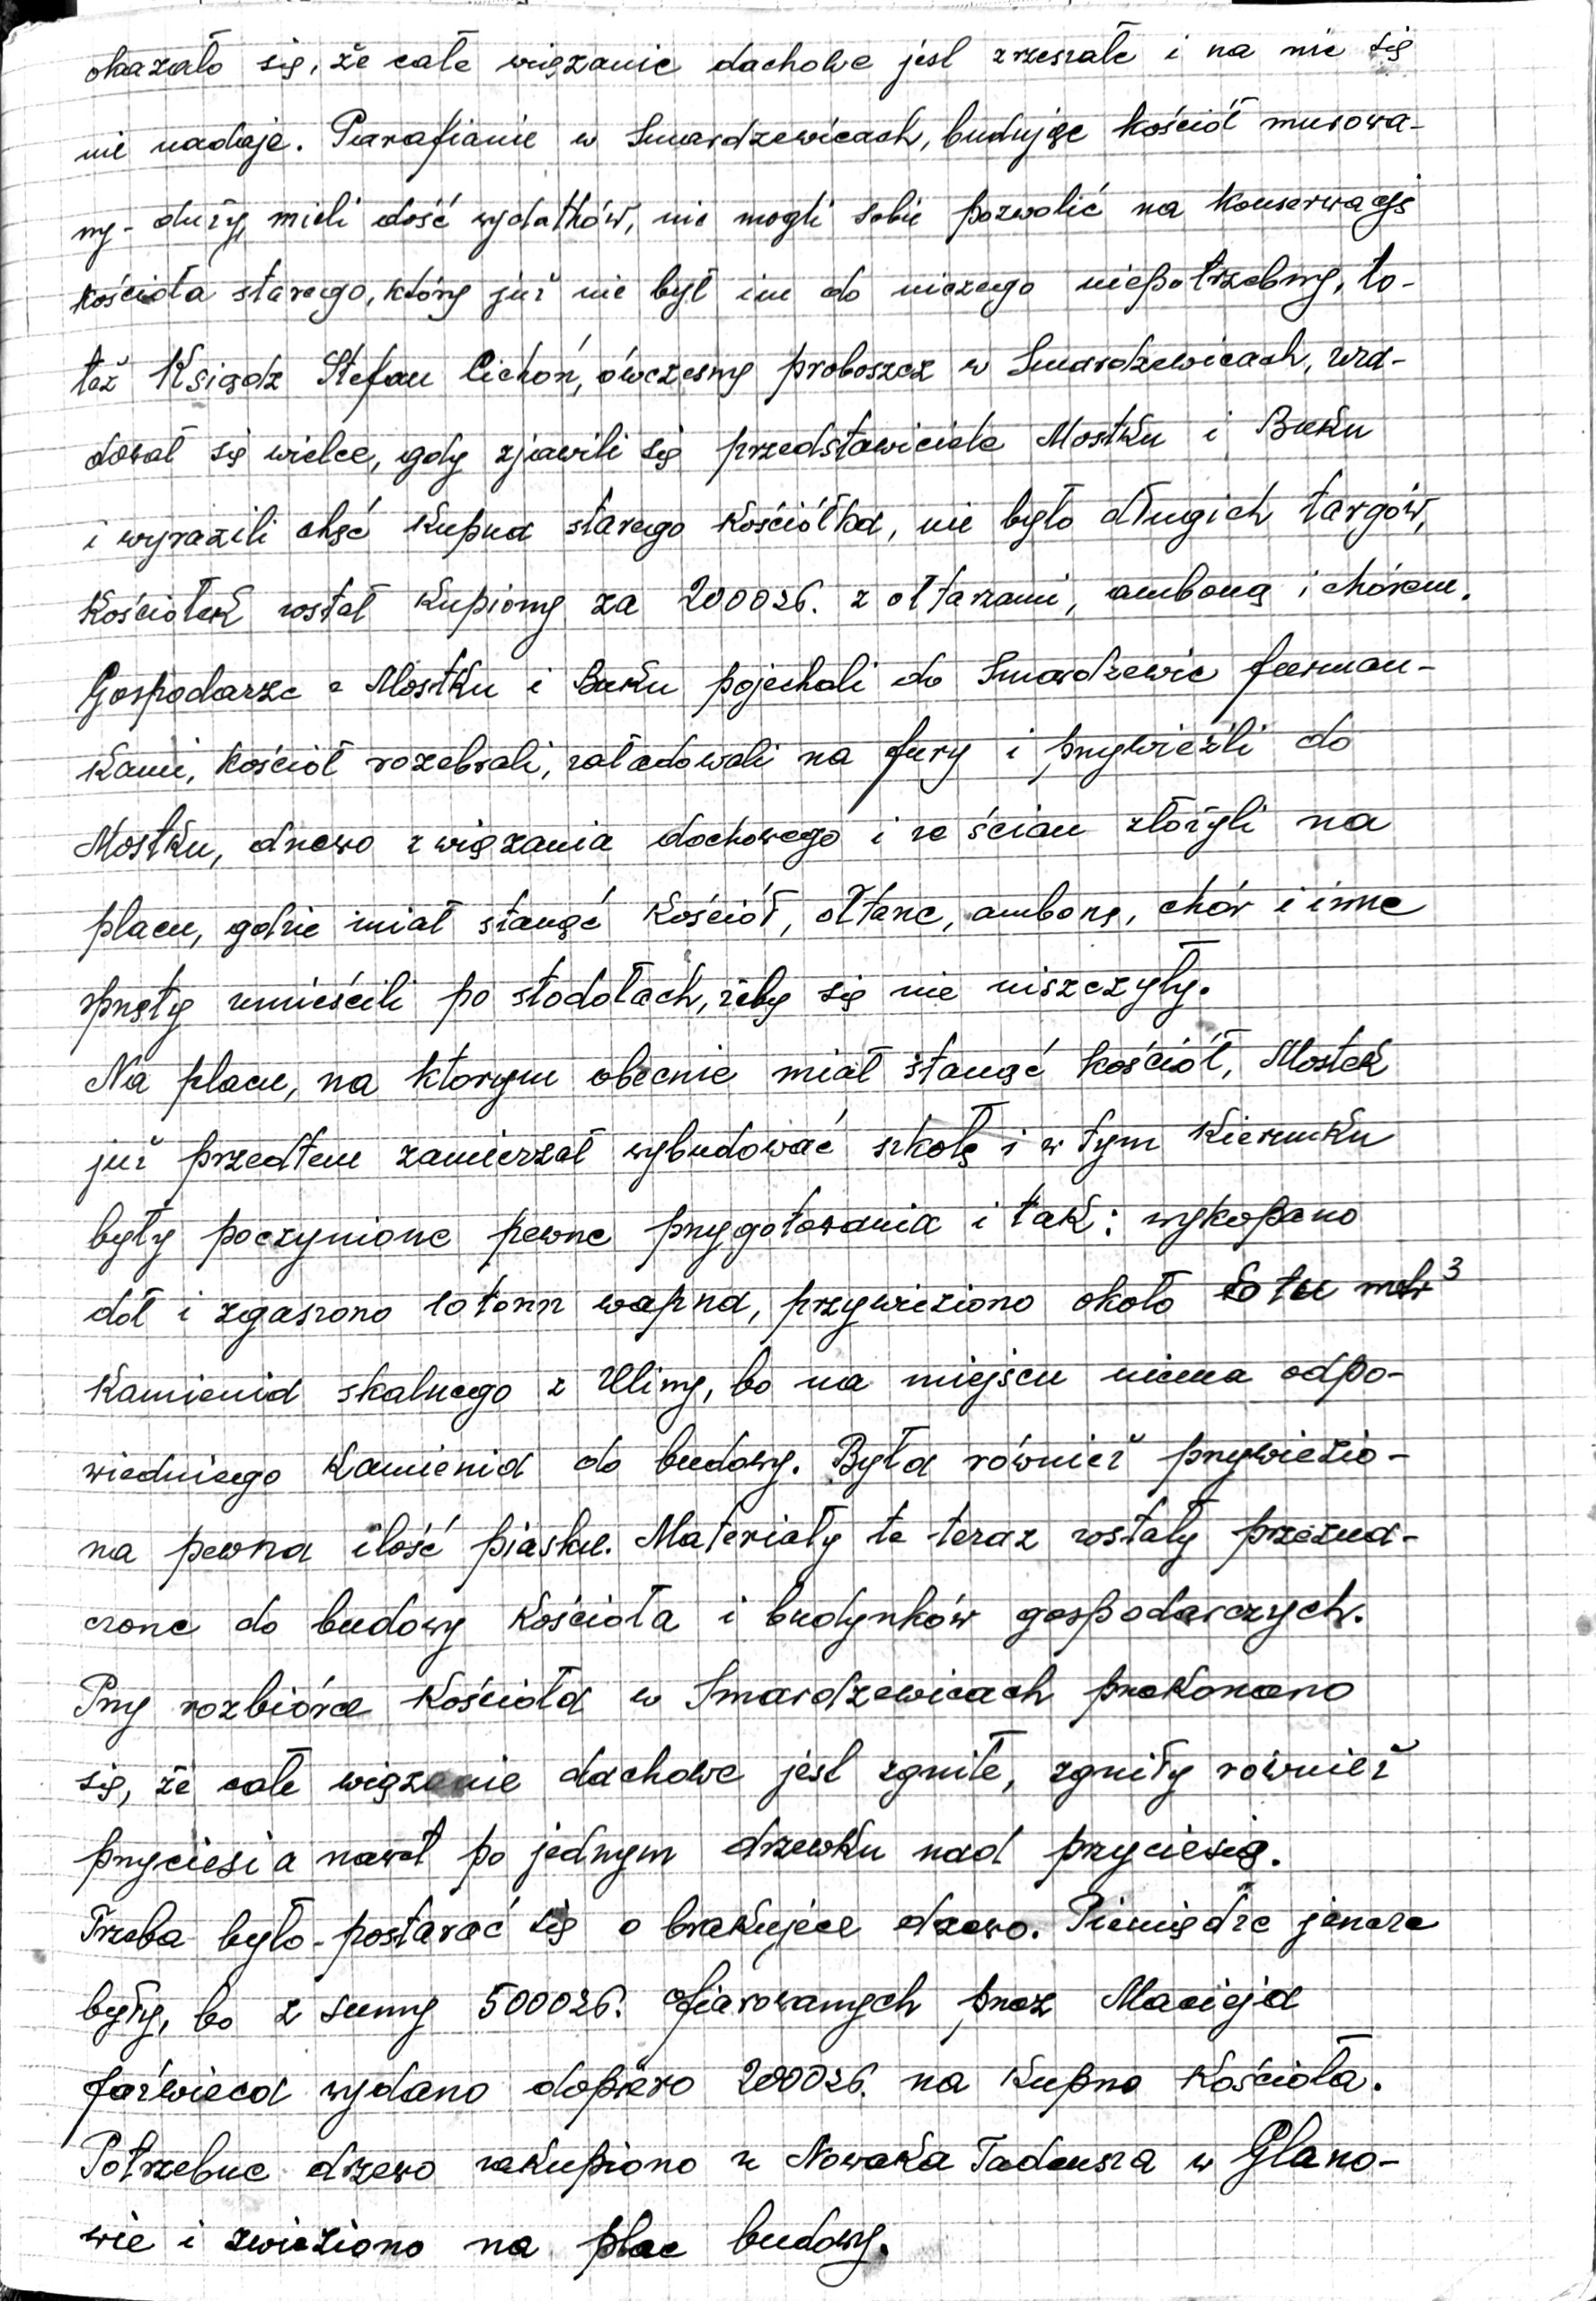 okazało się, że całe wiązanie dachowe jest zrzeszałe i na nic się
nie nadaje. Parafianie w Smardzewicach, budując kościół murowa-
ny - duży, mieli dość wydatków, nie mogli sobie pozwolić na konserwację
kościoła starego, który już nie był im do niczego niepotrzebny, to-
też Ksiądz Stefan Cichoń, ówczesny proboszcz w Smardzewicach, ura-
dował się wielce, gdy zjawili się przedstawiciele Mostku i Buku
i wyrazili chęć kupna starego kościółka, nie było długich targów,
Kościołek został kupiony za 2000zł. z ołtarzami, amboną i chórem.
Gospodarze z Mostku i Buku pojechali do Smardzewic furman-
kami, kościół rozebrali, załadowali na fury i przywieźli do
Mostku, drzewo z wiązania dachowego i ze ścian złożyli na
placu, gdzie miał stanąć kościół, ołtarze, ambonę, chór i inne
sprzęty umieścili po stodołach, żeby się nie niszczyły.
Na placu, na którym obecnie miał stanąć kościół, Mostek
już przedtem zamierzał wybudować szkołę i w tym kierunku
były poczynione pewne przygotowania i tak: wykopano
dół i zgaszono 10 tonn wapna, przywieziono około mtr³
kamienia skalnego z Uliny, bo na miejscu niema odpo-
wiedniego kamienia do budowy. Była również przywiezio-
na pewna ilość piasku. Materiały te teraz zostały przezna-
czone do budowy kościoła i budynków gospodarczych.
Przy rozbiórce kościoła w Smardzewicach przekonano
się, że całe wiązanie dachowe jest zgniłe, zgniły również
przyciesi a nawet po jednym drzewku nad przyciesią.
Trzeba było postarać się o brakujące drzewo. Pieniądze jeszcze
były, bo z sumy 5000zł. ofiarowanych przez Macieja
Jaźwieca wydano dopiero 2000zł. na kupno kościoła.
Potrzebne drzewo zakupiono u Nowaka Tadeusza w Glano-
wie i zwieziono na plac budowy.